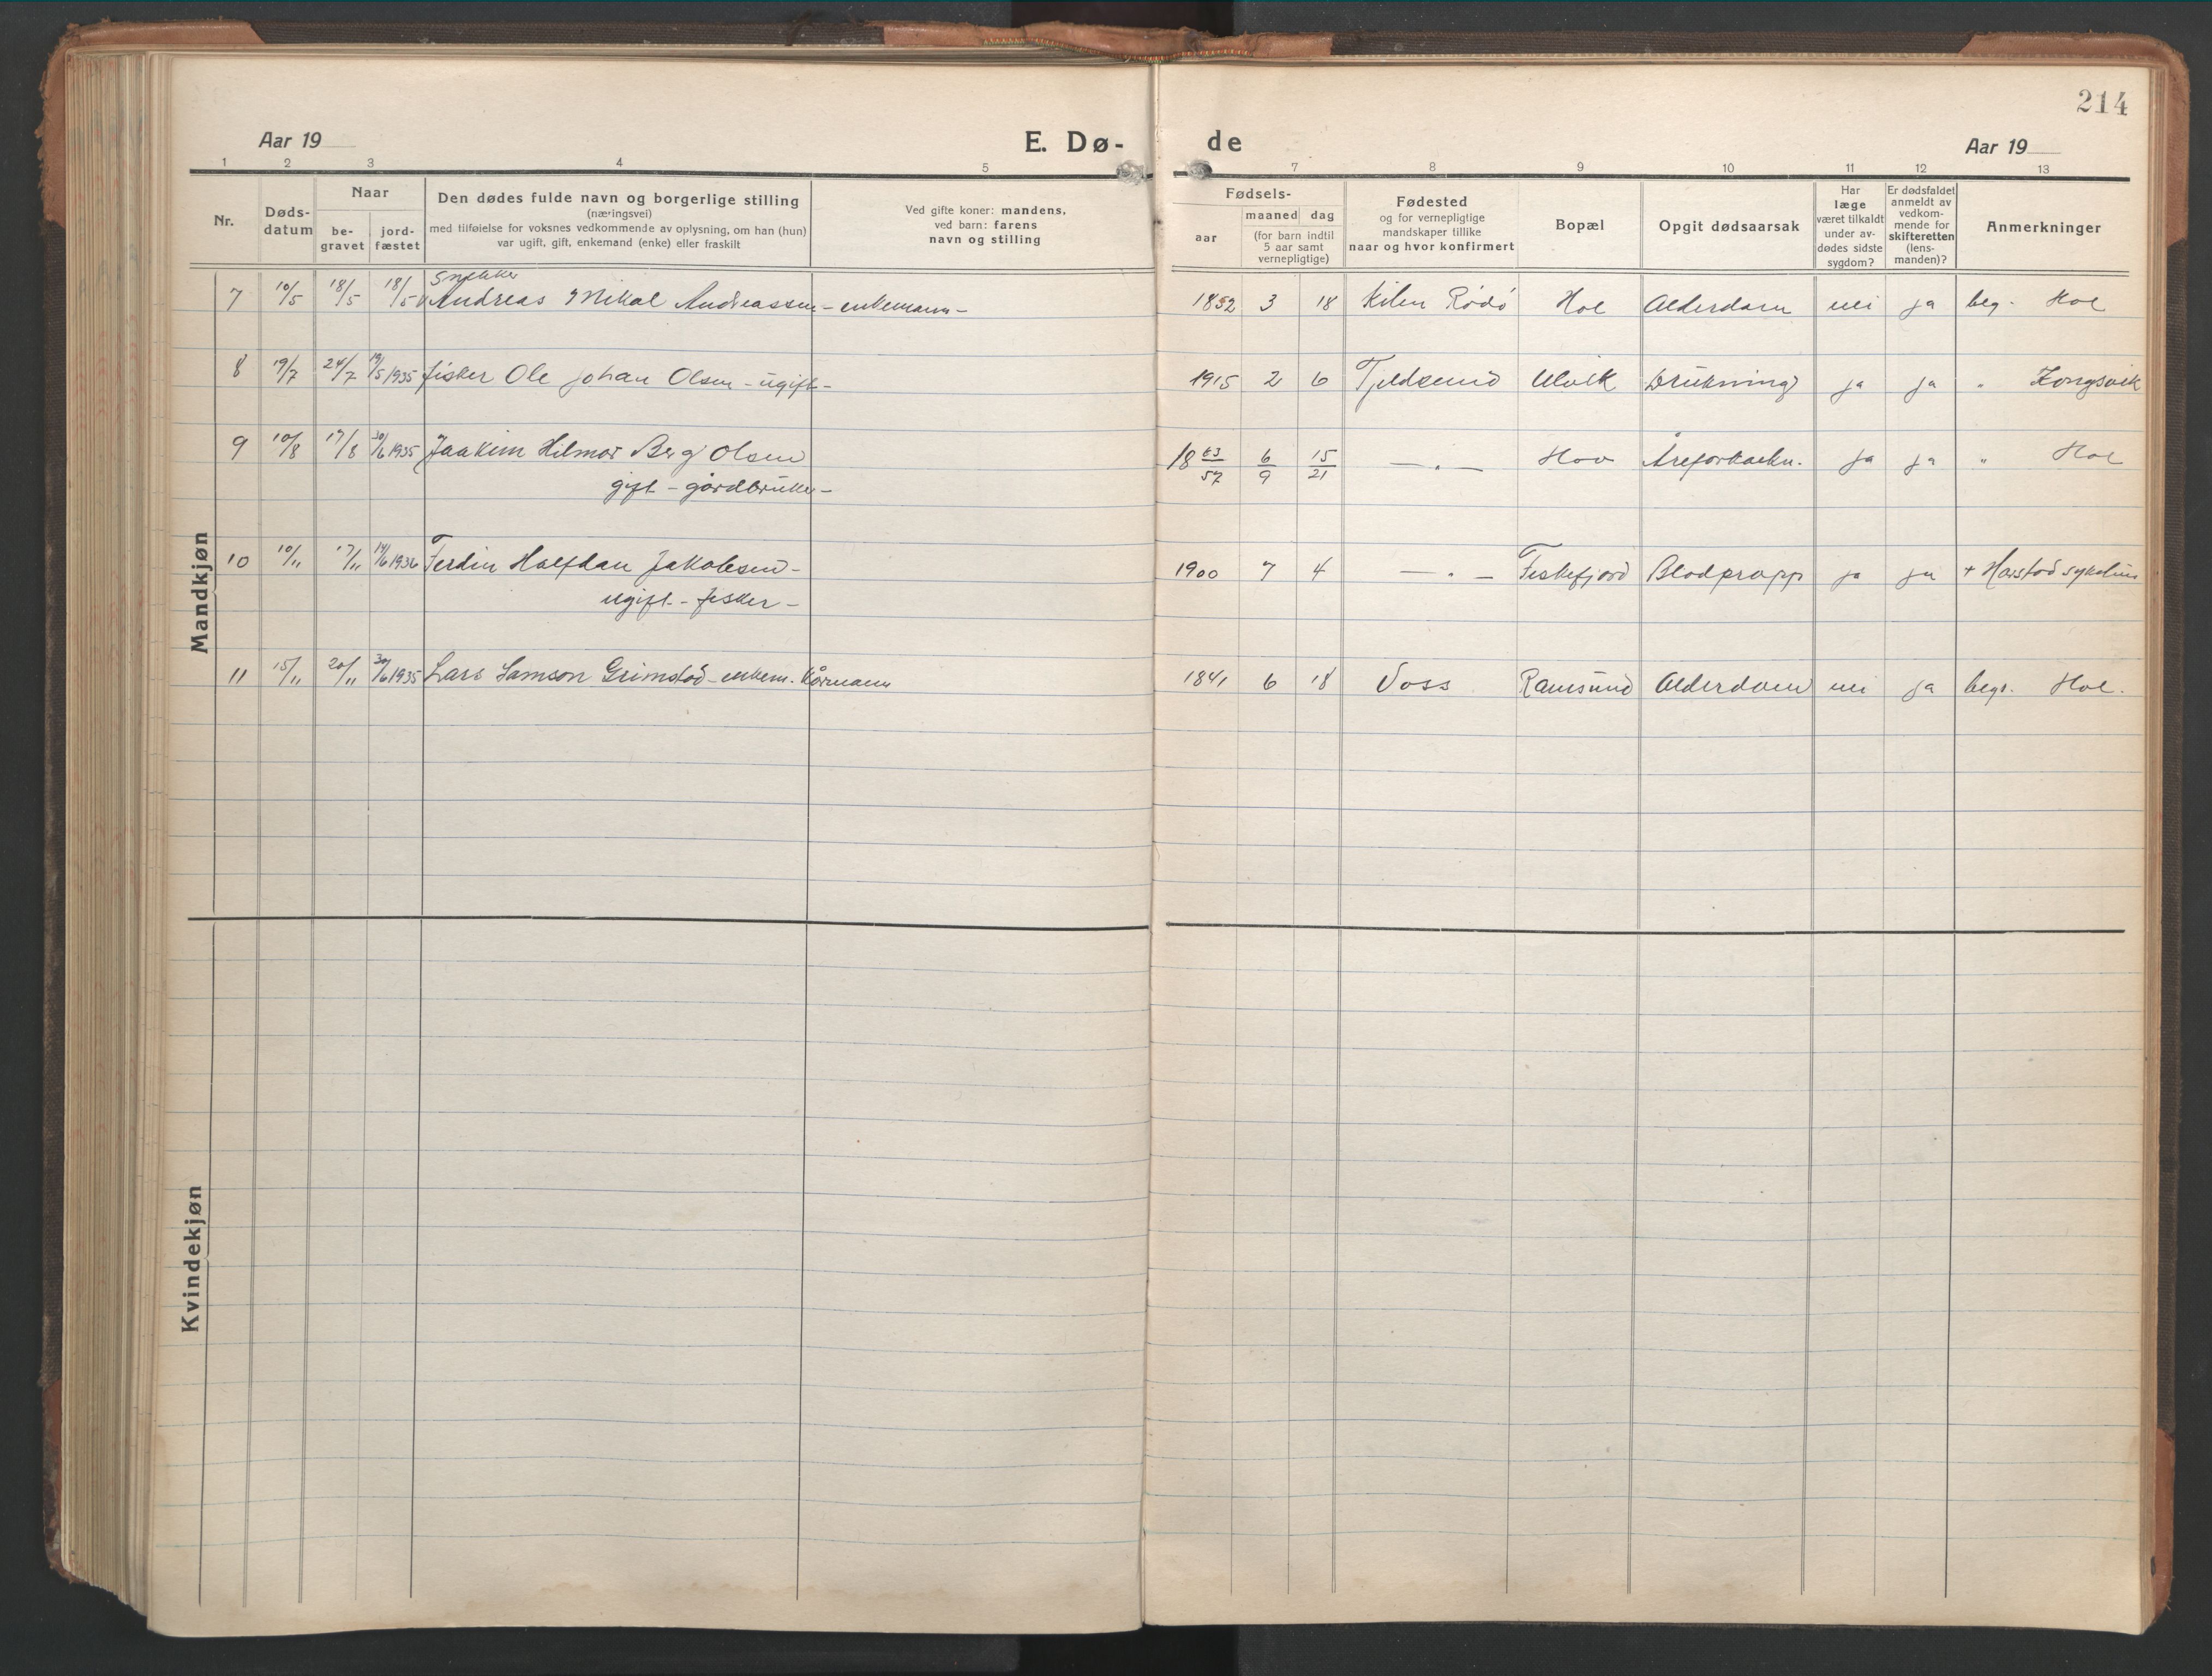 214
Aar 19
E. Dø-
de
Aar 19
1 2 3 4 5 7 8 9 10 11 12 13
Nr.
Døds-
datum
Naar
be-
gravet
jord-
fæstet
Den dødes fulde navn og borgerlige stilling
(næringsvei)
med tilføielse for voksnes vedkommende av oplysning, om han (hun)
var ugift, gift, enkemand (enke) eller fraskilt
Ved gifte koner: mandens,
ved barn: farens
navn og stilling
Fødsels-
aar
maaned dag
(for barn indtil
5 aar samt
vernepligtige)
Fødested
og for vernepligtige
mandskaper tillike
naar og hvor konfirmert
Bopæl
Opgit dødsaarsak
Har
læge
været tilkaldt
under av-
dødes sidste
sygdom?
Er dødsfaldet
anmeldt av
vedkom-
mende for
skifteretten
(lens-
manden)?
Anmerkninger
Mandkjøn
Snekker
7 10/5 18/5 18/5 Andreas Mikal Andreassen - enkemann - 1852 3 18 Kilen Rødø Hol Alderdom nei ja beg. Hol
8 19/7 24/7 19/5 1935 fisker Ole Johan Olsen - ugift - 1915 2 6 Tjeldsund Ulvik Drukning ja ja " Kongsvik
9 10/8 17/8 30/6 1935 Joakim Hilmar Berg Olsen 18 63/57 6/9 15/21 — " — Hov Åreforkalkn. ja ja " Hol
gift - gårdbruker -
10 10/11 17/11 14/6 1936 Ferdin Halfdan Jakobsen - 1900 7 4 — " — Fiskefjord Blodpropp ja ja + Harstad sykehus
ugift - fisker -
11 15/11 20/11 30/6 1935 Lars Samson Grimstad - enkem. kårmann 1841 6 18 Voss Ramsund Alderdom nei ja begr. Hol.
Kvindekjøn